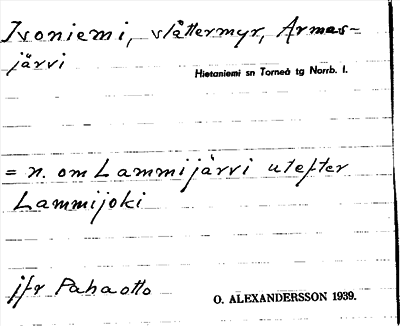 Ivoniemi, slåttermyr, Armas-
järvi
Hietaniemi sn Torneå tg Norrb. l.
= n. om Lammijärvi utefter
Lammijoki
jfr Pahaotto
O. ALEXANDERSSON 1939.